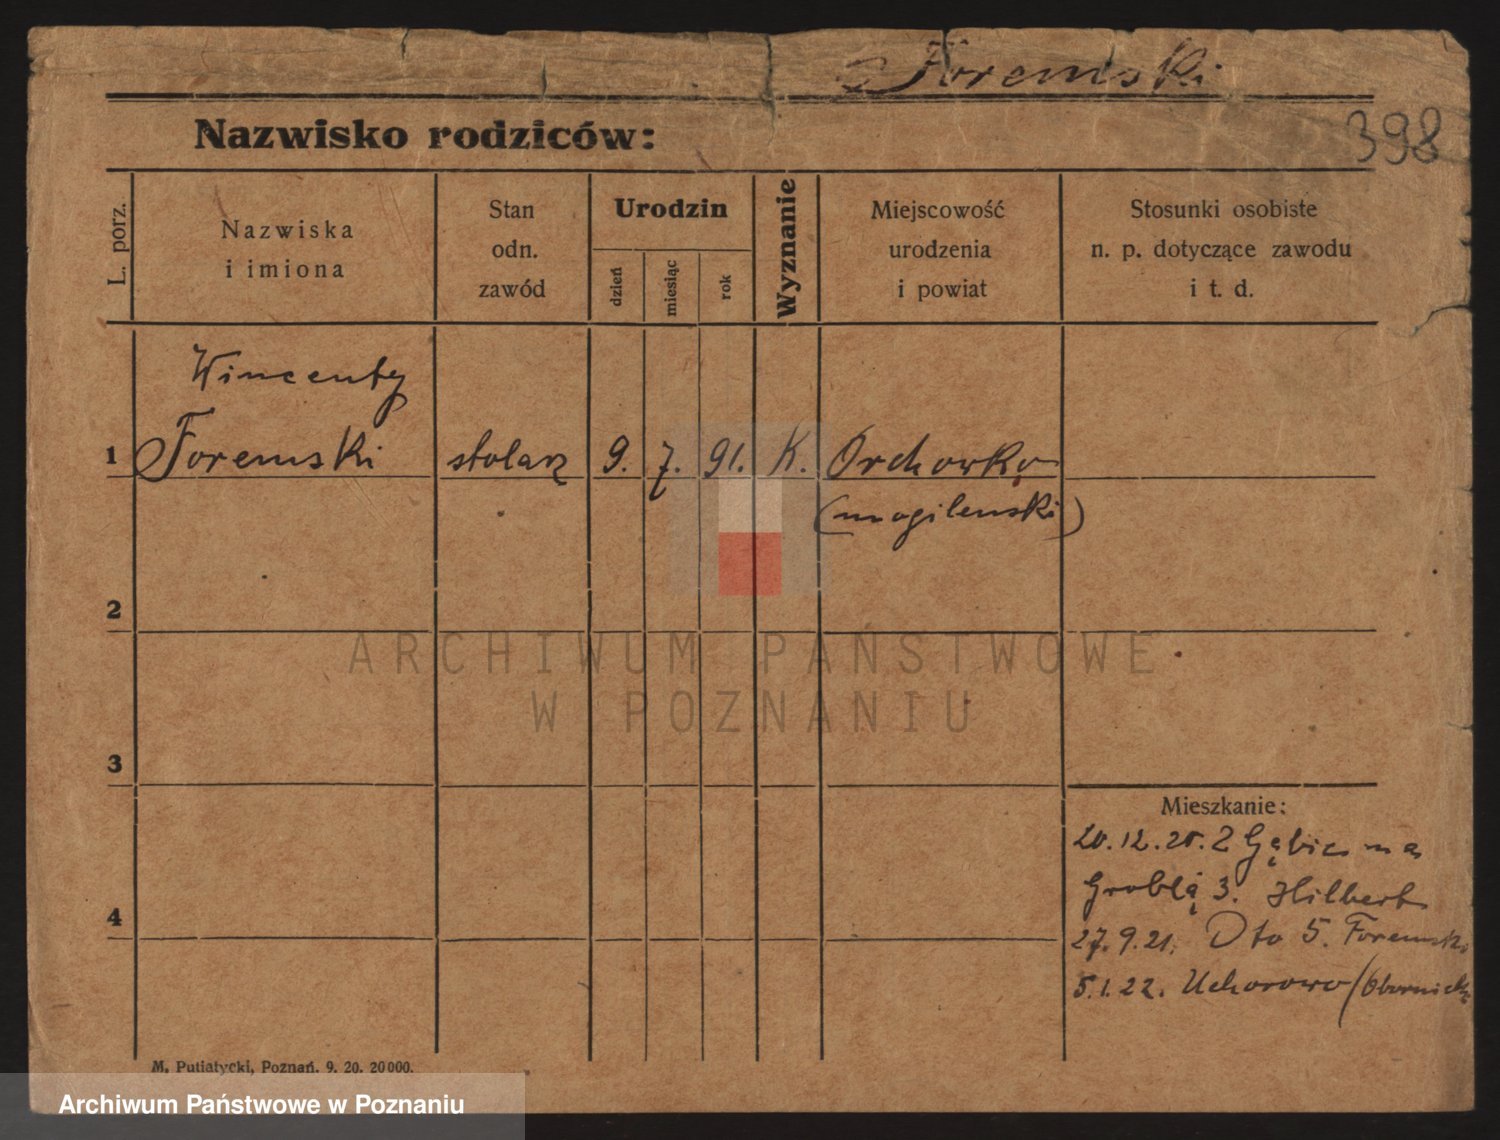 Foremski
Nazwisko rodziców:
398
L. porz.
Nazwiska
i imiona
Stan
odn.
zawód
Urodzin
dzień
miesiąc
rok
Wyznanie
Miejscowość
urodzenia
i powiat
Stosunki osobiste
n. p. dotyczące zawodu
i t. d.
Wincenty
1 Foremski stolarz 9. 7. 91. K. Orchowko
(mogilenski)
2
ARCHIWUM PAŃSTWOWE
W POZNANIU
3
Mieszkanie:
20.12.20. Z Gąbic na
Groblą 3. Hilbert
4
27.9.21. Dto 5. Foremski
5.1.22. Uchorowo (Obornicki
M. Putiatycki, Poznań. 9. 20. 20000.
Archiwum Państwowe w Poznaniu